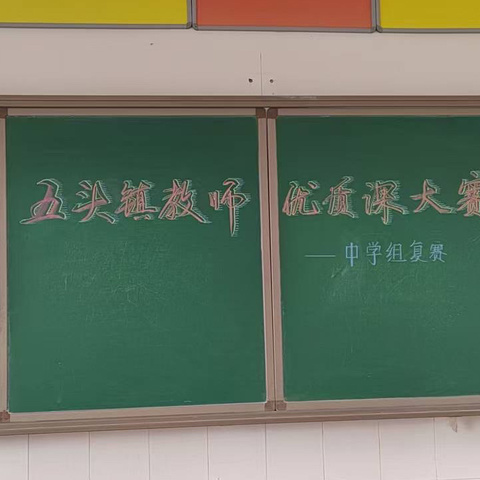 五头镇教师优质课大赛
——中学组复赛